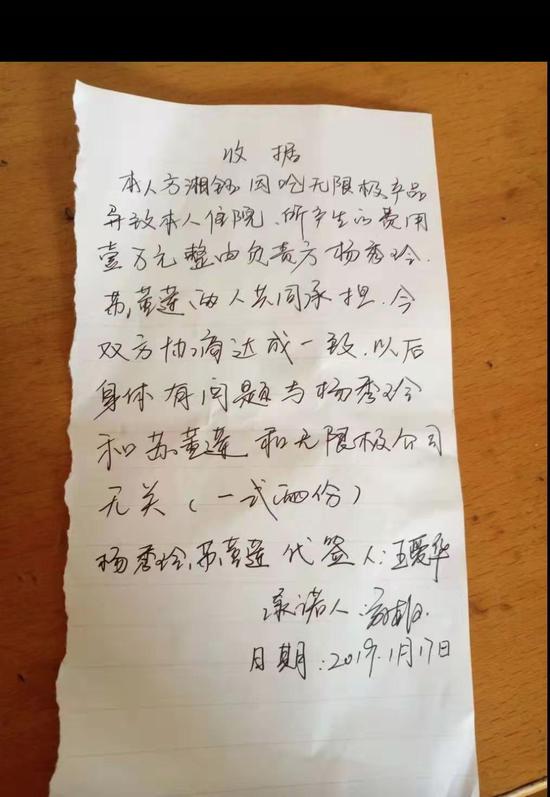 收据
本人方湘钰因吃无限极产品
导致本人住院、所产生的费用
壹万元整由负责方杨秀玲.
苏黄莲、两人共同承担.今
双方协商达成一致.以后
身体有问题与杨秀玲
和苏黄莲和无限极公司
无关(一式两份)
杨秀玲、苏黄莲代签人:王爱华
承诺人:
日期:2019.1月17日